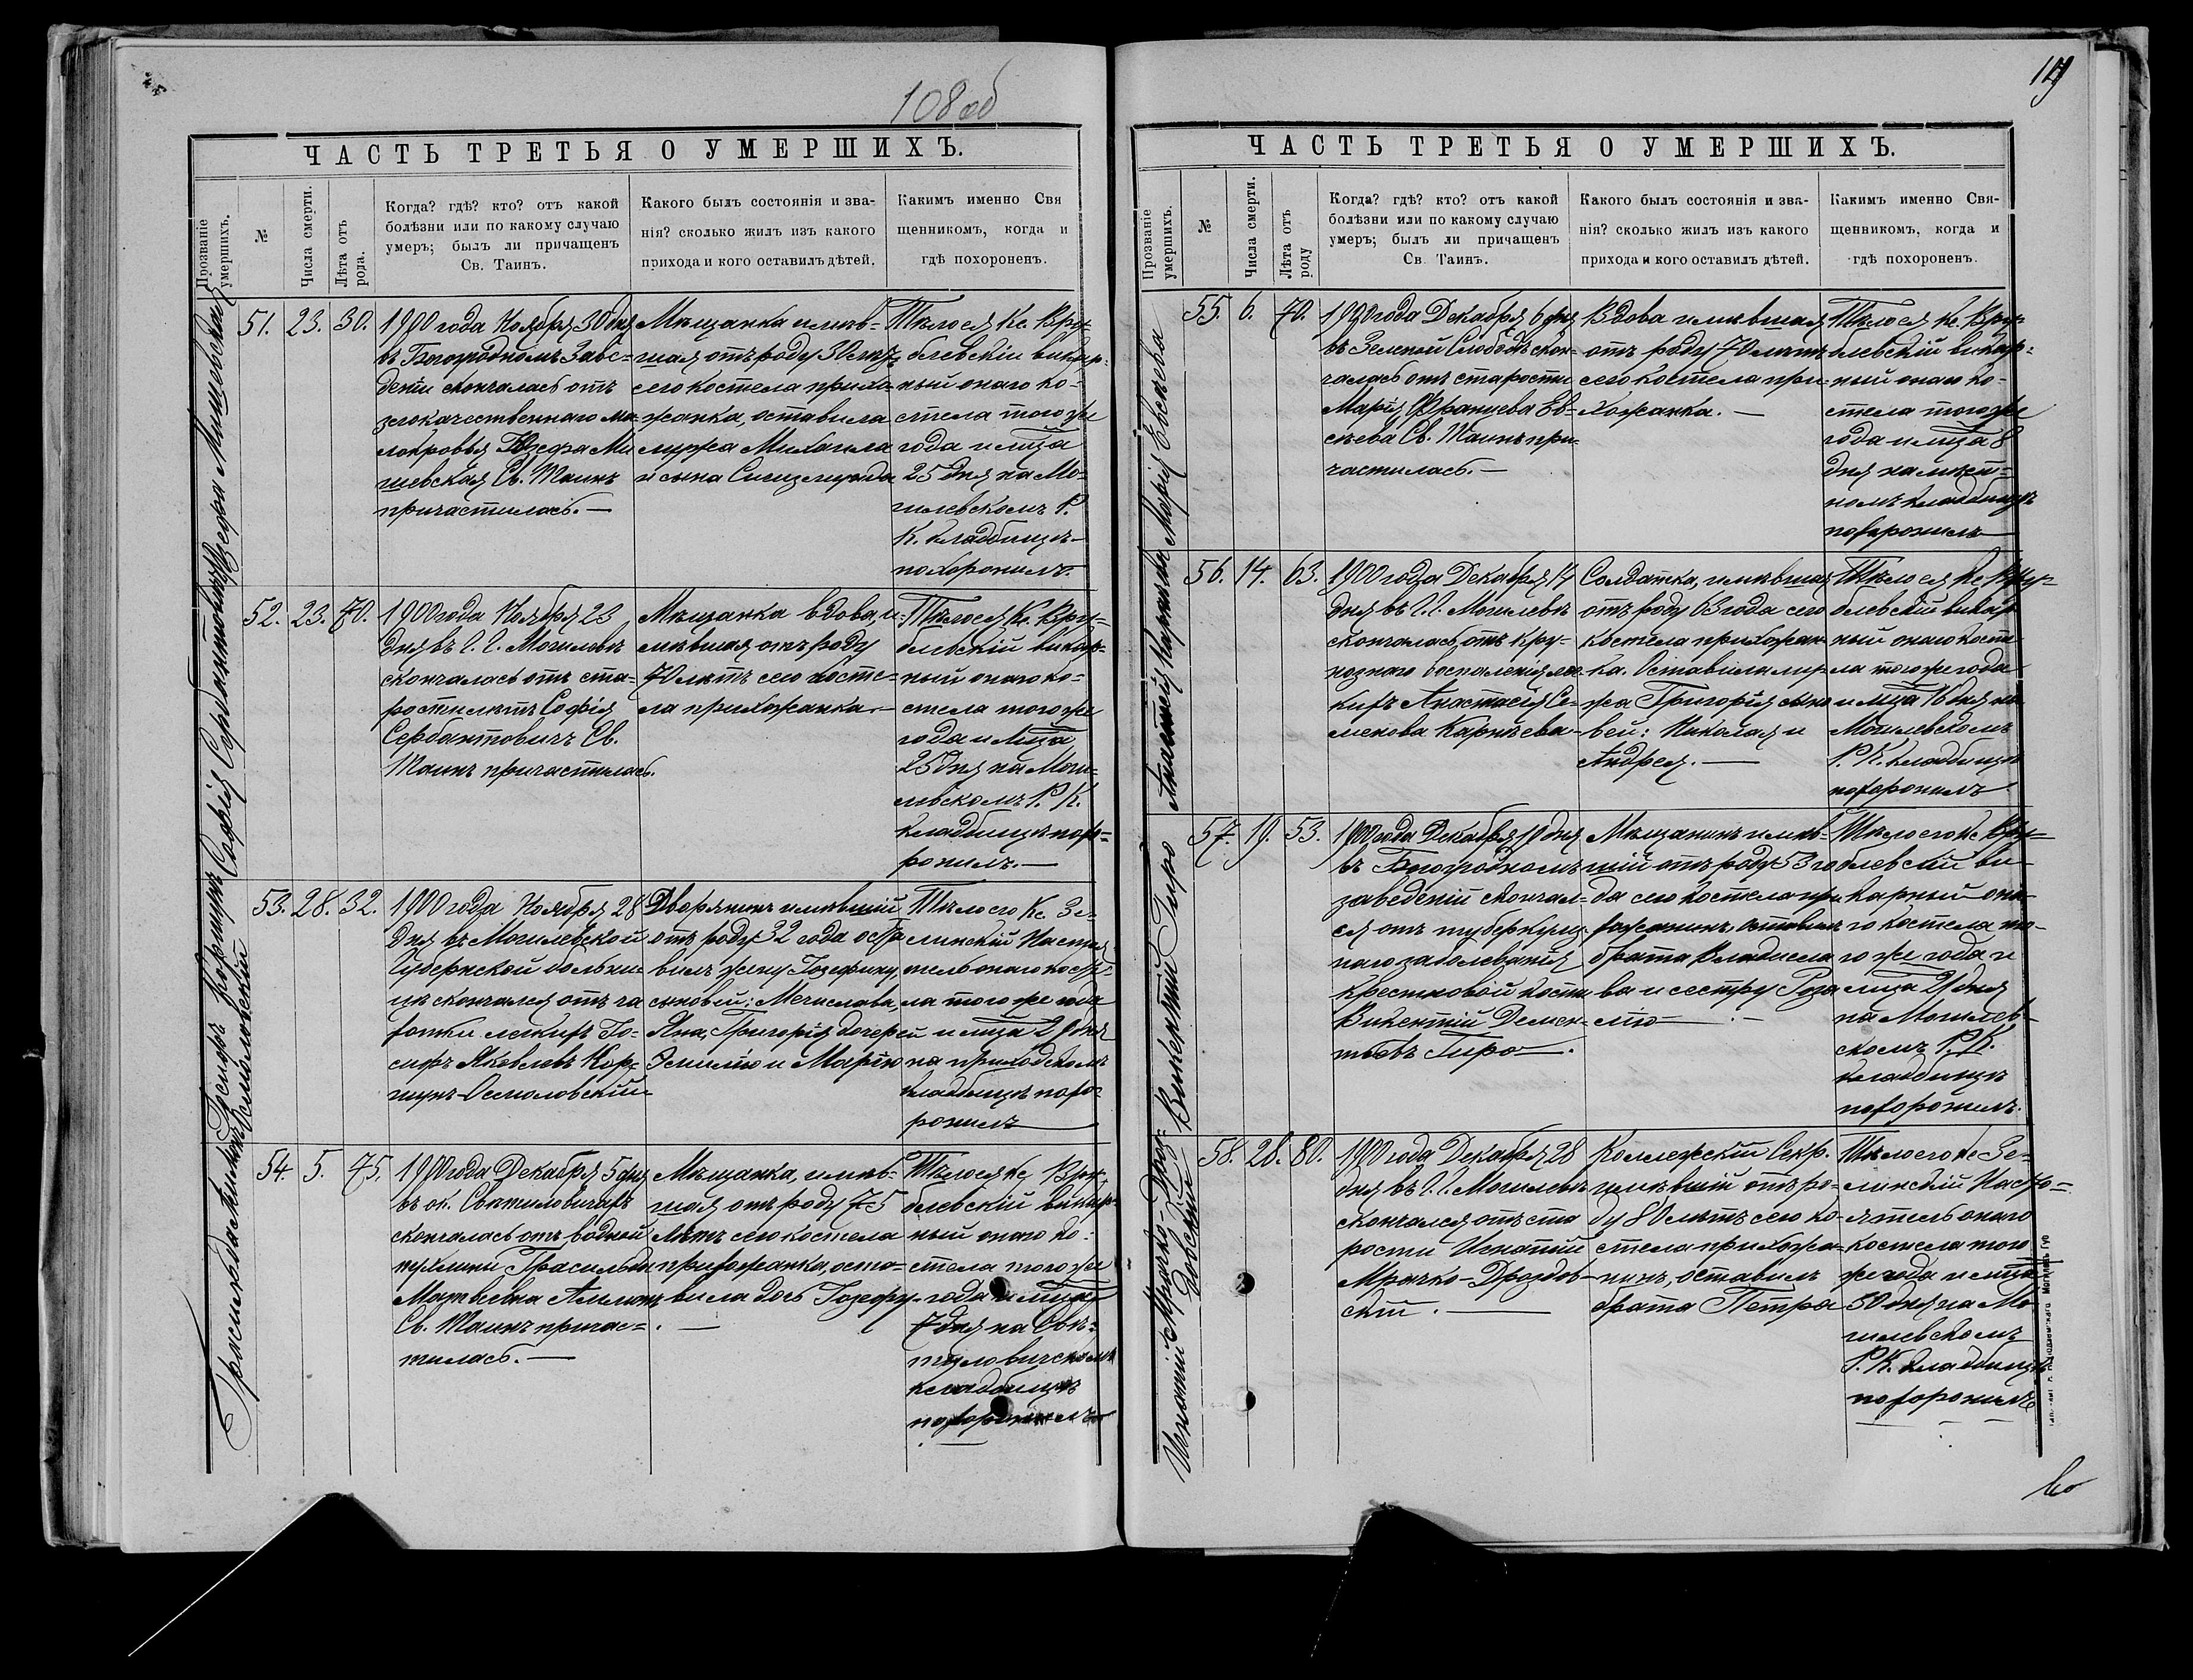 108 об
ЧАСТЬ ТРЕТЬЯ О УМЕРШИХЪ.
Прозваніе умершихъ.
№
Числа смерти.
Лѣта отъ рода.
Когда? гдѣ? кто? отъ какой
болѣзни или по какому случаю
умеръ; былъ ли причащенъ
Св. Таинъ.
Какого былъ состоянія и зва-
нія? сколько жилъ изъ какого
прихода и кого оставилъ дѣтей.
Каким именно Свя
щенникомъ, когда и
гдѣ похороненъ.
Юзефа Мишевская
51. 23. 30.
1900 года Ноября 30 дня
въ Богоугодномъ Заве-
деніи скончалась отъ
злокачественнаго ма-
локровья Юзефа Ми
шевская Св. Таинъ
причастилась. —
Мѣщанка имѣв-
шая отъ роду 30 лѣтъ
сего костела прихо-
жанка, оставила
мужа Михаила
и сына Сигизмунда
Тѣло ея Кс. Вру-
блевскій викар-
ный онаго ко-
стела того же
года и мца
25 дня на Мо-
гилевскомъ Р.
К. кладбищѣ
похоронилъ.
Софія Сербантовичъ
52. 23. 70.
1900 года Ноября 23
дня въ г. г. Могилевѣ
скончалась отъ ста-
рости лѣтъ Софія
Сербантовичъ Св.
Таинъ причастилась.
Мѣщанка вдова, и-
мѣвшая отъ роду
70 лѣтъ сего косте-
ла прихожанка —
Тѣло ея Кс. Вру-
блевскій викар-
ный онаго ко-
стела того же
года и Мца
25 дня на Моги-
левскомъ Р. К.
кладбищѣ похо-
ронилъ. —
Іосифъ Коршунъ
Осмоловскій
53. 28. 32.
1900 года Ноября 28
дня въ Могилевской
Губернской больни-
цѣ скончался отъ ча
хотки легкихъ Іо-
сифъ Яковлевъ Кор-
шунъ-Осмоловскій
Дворянинъ имѣвшій
отъ роду 32 года оста
вилъ жену Іозефину
сыновей: Мечислава,
Яна, Григорія дочерей
Эмилію и Марію
Тѣло его Кс. Зе-
линскій Настоя-
тель онаго косте-
ла того же года
и мца 29 дня
на приходскомъ
кладбищѣ похо-
ронилъ
Грасильда Алимонъ
54. 5. 75.
1900 года Декабря 5 дня
въ ок. Свѣтиловичахъ
скончалась отъ водной
пухлины Грасильда
Матвѣевна Алимонъ
Св. Таинъ причас-
тилась. —
Мѣщанка, имѣв-
шая отъ роду 75
лѣтъ сего костела
прихожанка, оста-
вила дочь Іозефу.
. —
Тѣло ея Кс Вру-
блевскій викар-
ный онаго ко-
стела того же
года и мца
7 дня на Свѣ-
тиловичскомъ
кладбищѣ
похоронилъ
ЧАСТЬ ТРЕТЬЯ О УМЕРШИХЪ.
Прозваніе умершихъ.
№
Числа смерти.
Лѣта отъ роду
Когда? гдѣ? кто? отъ какой
болѣзни или по какому случаю
умеръ; былъ ли причащенъ
Св Таинъ.
Какого былъ состоянія и зва-
нія? сколько жилъ изъ какого
прихода и кого оставилъ дѣтей.
Какимъ именно Свя-
щенникомъ, когда и
гдѣ похороненъ.
Марія Евсѣева
55. 6. 70.
1900 года Декабря 6 дня
въ Зеленой Слободѣ скон-
чалась отъ старости
Марія Францева Ев-
сѣева Св. Таинъ при-
частилась. —
Вдова имѣвшая
отъ роду 70 лѣтъ
сего костела при-
хожанка. —
Тѣло ея Кс. Вру-
блевскій викар-
ный онаго ко-
стела того же
года и мца 8
дня на мѣст-
номъ кладбищѣ
похоронилъ
Анастасія Карнѣева
56. 14. 63.
1900 года Декабря 14
дня въ г. г. Могилевѣ
скончалась отъ кру-
познаго воспаленія лег-
кихъ Анастасія Се-
менова Карнѣева
Солдатка, имѣвшая
отъ роду 63 года сего
костела прихожан-
ка. Оставила му-
жа Григорія сыно
вей: Николая и
Андрея. —
Тѣло ея Кс Вру-
блевскій викар
ный онаго косте-
ла того же года
и мца 16 дня на
Могилевскомъ
Р. К. кладбищѣ
похоронилъ
Викентій Гиро
57. 19. 53.
1900 года Декабря 19 дня
въ Богоугодномъ
заведеніи скончал-
ся отъ туберкулез-
наго заболеванія
крестцовой кости
Викентій Демен-
тьевъ Гиро —.
Мѣщанинъ имѣв-
шій отъ роду 53 го
да сего костела при
хожанинъ, оставилъ
брата Владисла
ва и сестру Роза
лію —
Тѣло его Кс Вру-
блевскій ви-
карный она-
го костела то-
го же года и
мца 21 дня
на Могилев-
скомъ Р. К.
кладбищѣ
похоронилъ.
Игнатій Мрочко-Дроз-
довскій
58. 28. 80.
1900 года Декабря 28
дня въ г. г. Могилевѣ
скончался отъ ста
рости Игнатій
Мрочко-Дроздов-
скій. —
Коллежскій Секр.
имѣвшій отъ ро-
ду 80 лѣтъ сего ко-
стела прихожа-
нинъ, оставилъ
брата Петра
Тѣло его Кс Зе-
линскій Насто-
ятель онаго
костела того
же года и мца
30 дня на Мо
гилевскомъ
Р. К. кладбищѣ
похоронилъ